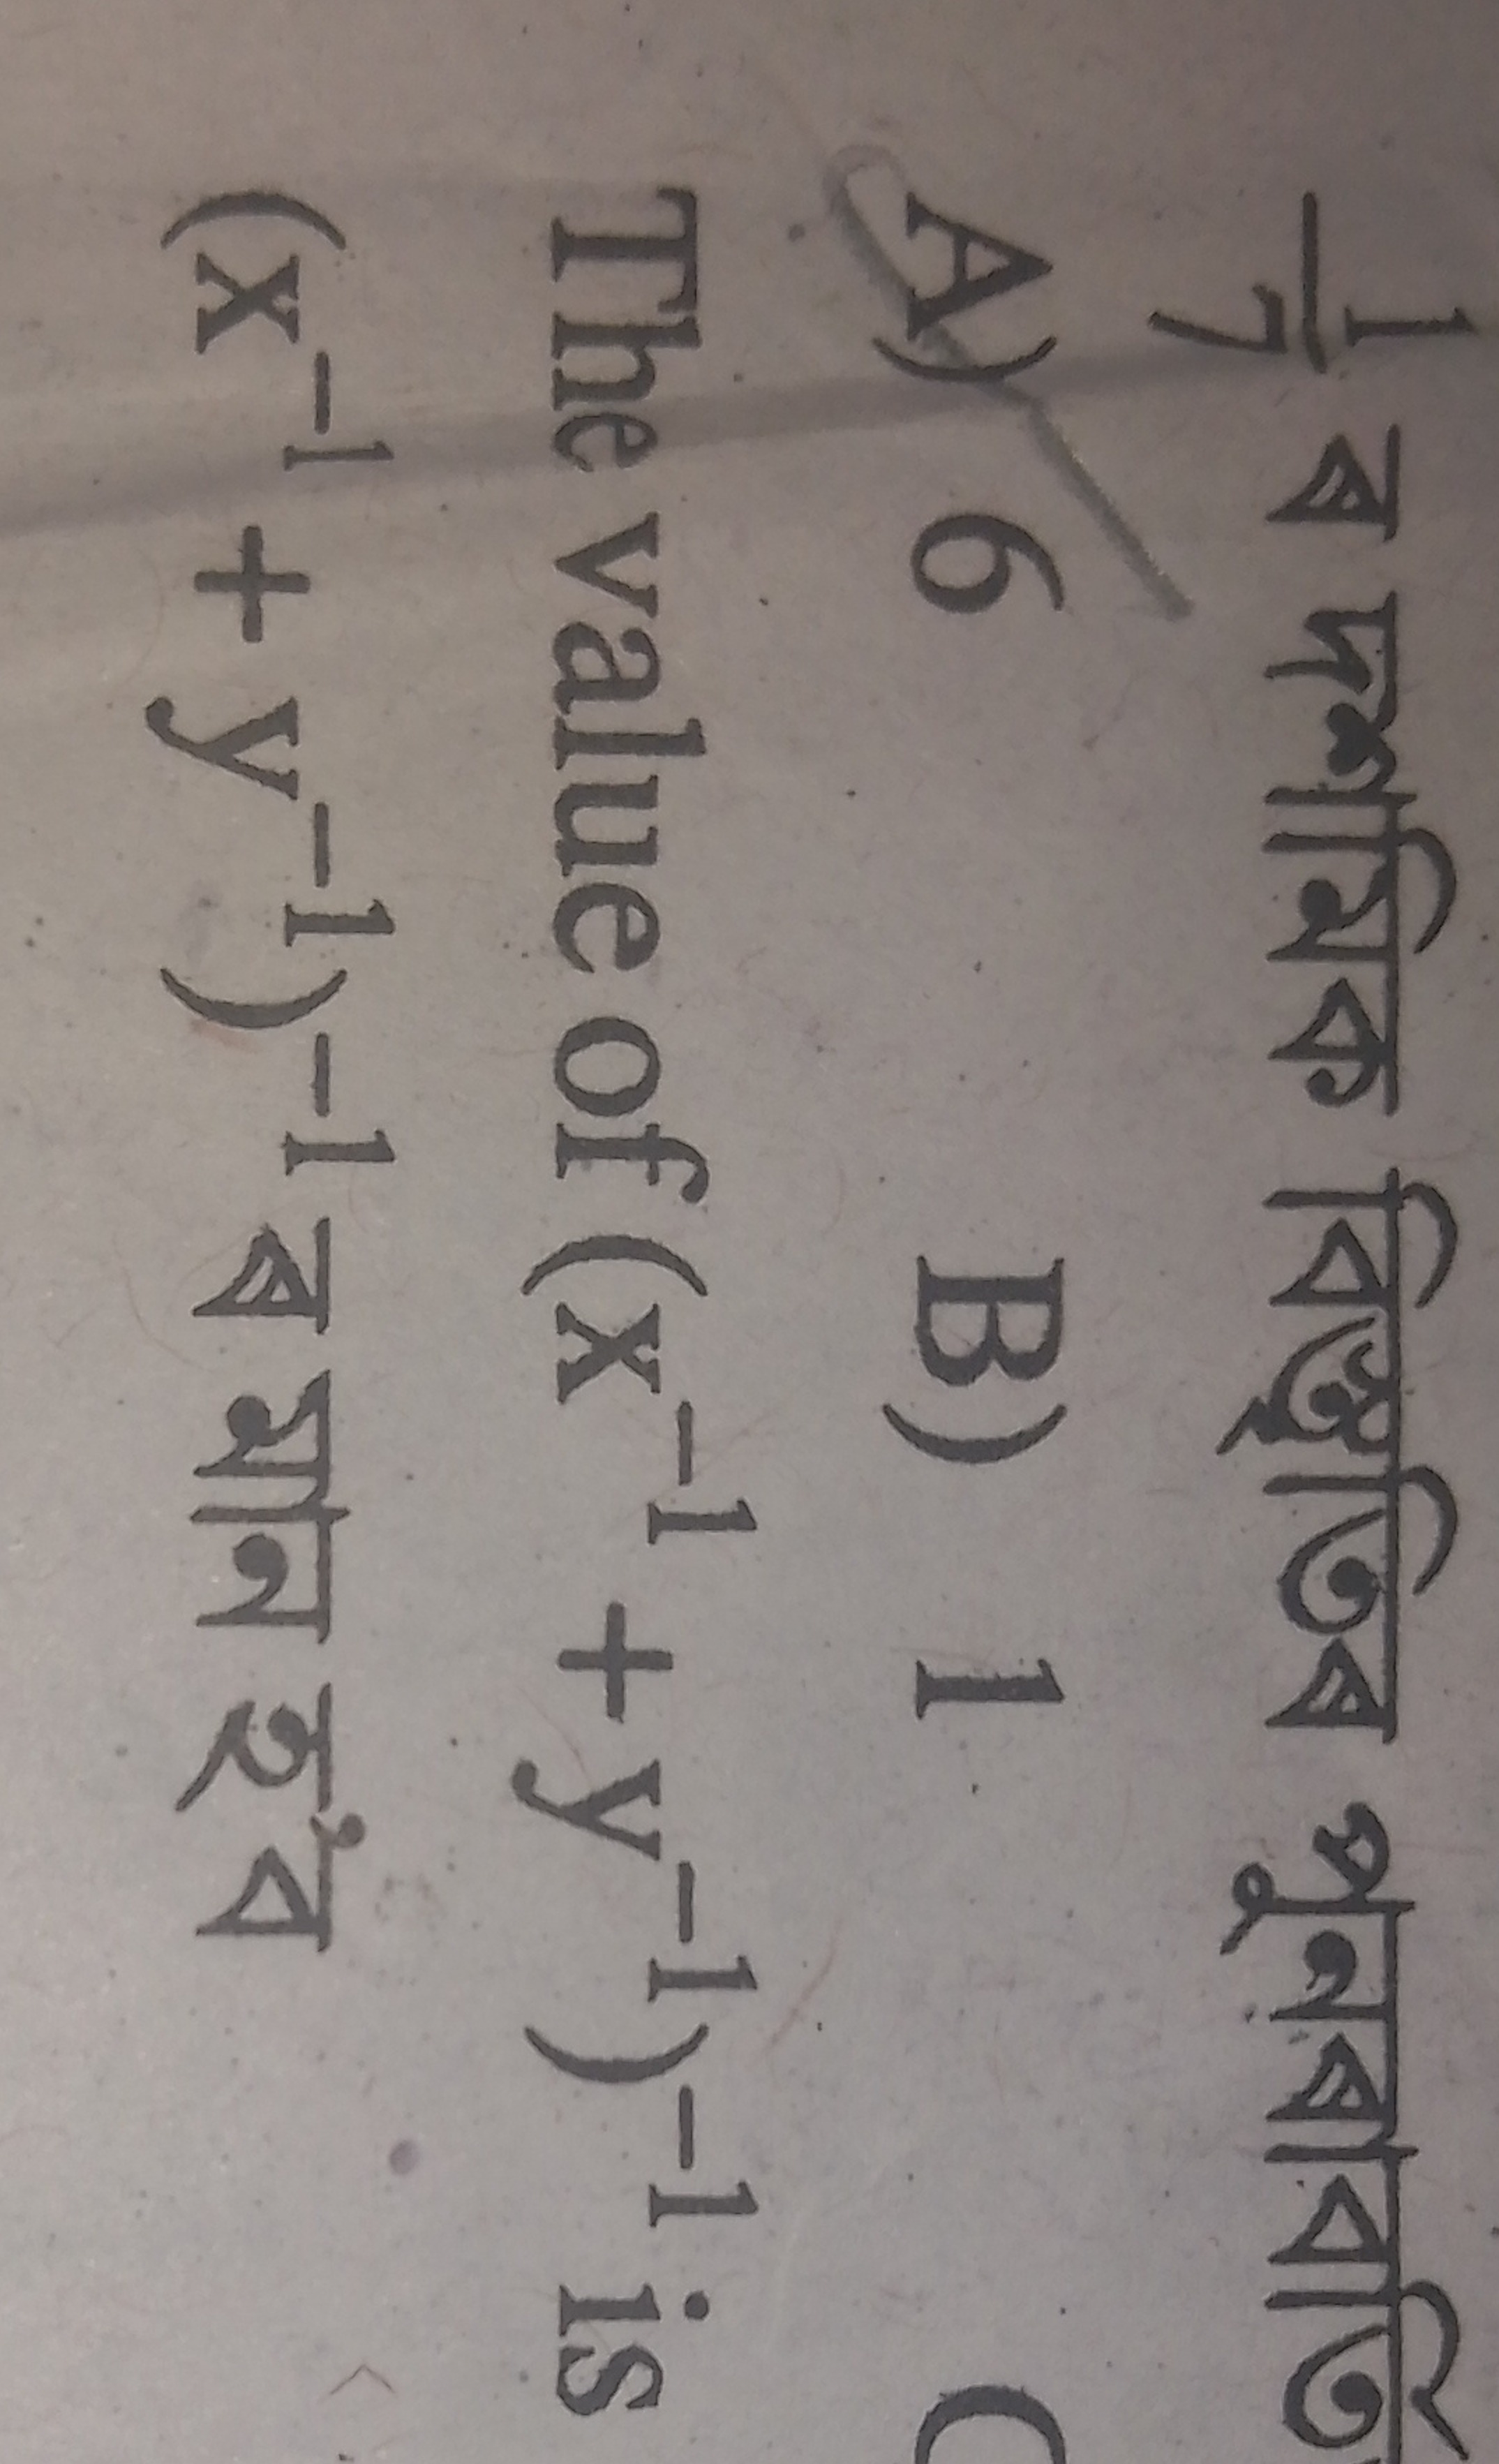 1/7 ৰ দশমিক বিস্তৃতিৰ পুনৰাবৰ্তি
A) 6 B) 1 C
The value of (x⁻¹ + y⁻¹)⁻¹ is
(x⁻¹ + y⁻¹)⁻¹ ৰ মান হ'ব